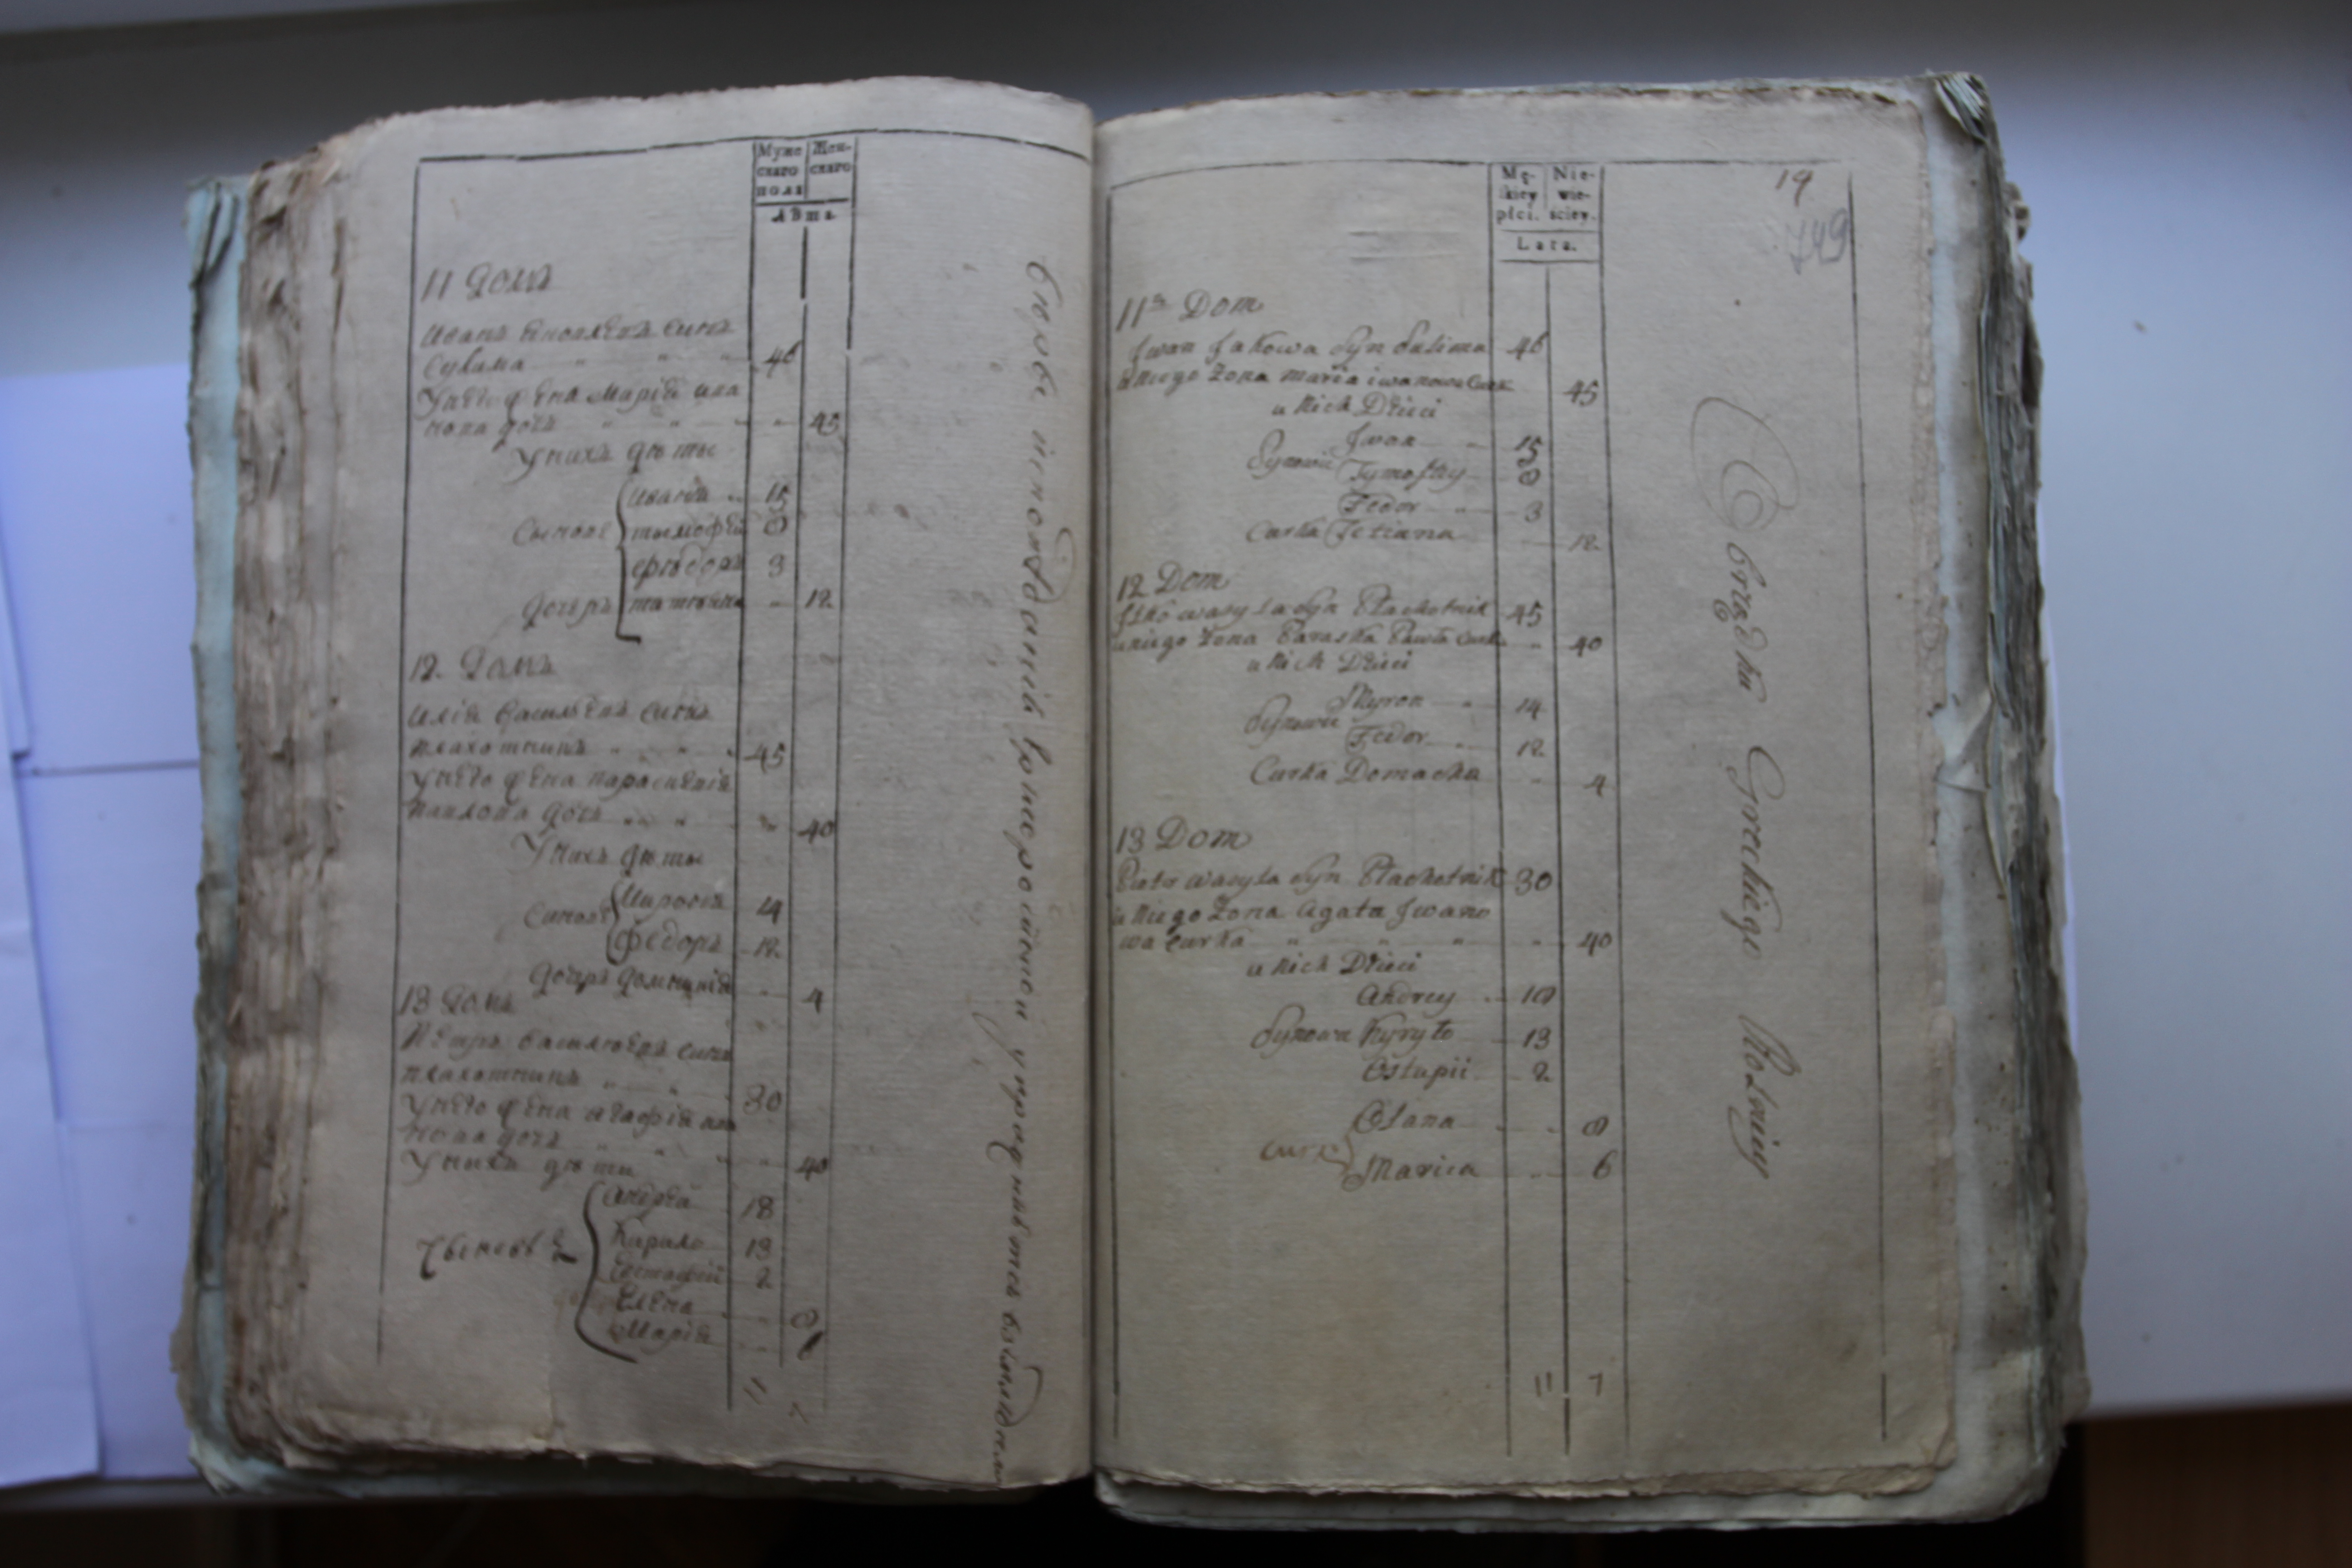 Муже
скаго
пола
Жен-
скаго
Лѣта.
11 Домъ
Иванъ Яковлевъ синъ
Сулима 46
У него жена Марія ива
нова дочь 45
У нихъ дѣты
Иванъ 15
Сынове тымофѣй 8
Фѣдоръ 3
Дочерь татіяна 12
12. Домъ
Илія Василѣевъ синъ
плахотникъ 45
У него жена параскевія
павлова дочь 40
У нихъ дѣты
Миронъ 14
Синове
Федоръ 12
Дочерь домникія 4
13 Домъ
Петръ василѣевъ синъ
плахотникъ 30
У него жена агафія ива
нова дочь 40
У нихъ дѣти
Андрей 18
Кирило 13
Евстафій 2
Елена 8
Марія 6
11 7
Mę-
skiey
płci.
Nie-
wie-
ściey.
Lata.
19
749
11ª Dom
Jwan Jakowa Syn Sulima 46
u niego Żona maria iwanowa Curk 45
u nich Dzieci
Jwan 15
Synowie Tymofiey 8
Fedor 3
Curka Tetiana 12
12 Dom
Jlko wasyla Syn Płachotnik 45
u niego Żona Paraska Pawła Curka 40
u nich Dzieci
Myron 14
Synowie
Fedor 12
Curka Domacha 4
13 Dom
Piotr wasyla Syn Płachotnik 30
u niego Żona Agata Jwano
wa Curka 40
u nich Dzieci
Andrey 18
Synowie Kyryło 13
Ostapii 2
Olana 8
Curki
Marica 6
11 7
Obrządku Greckiego Rolniy